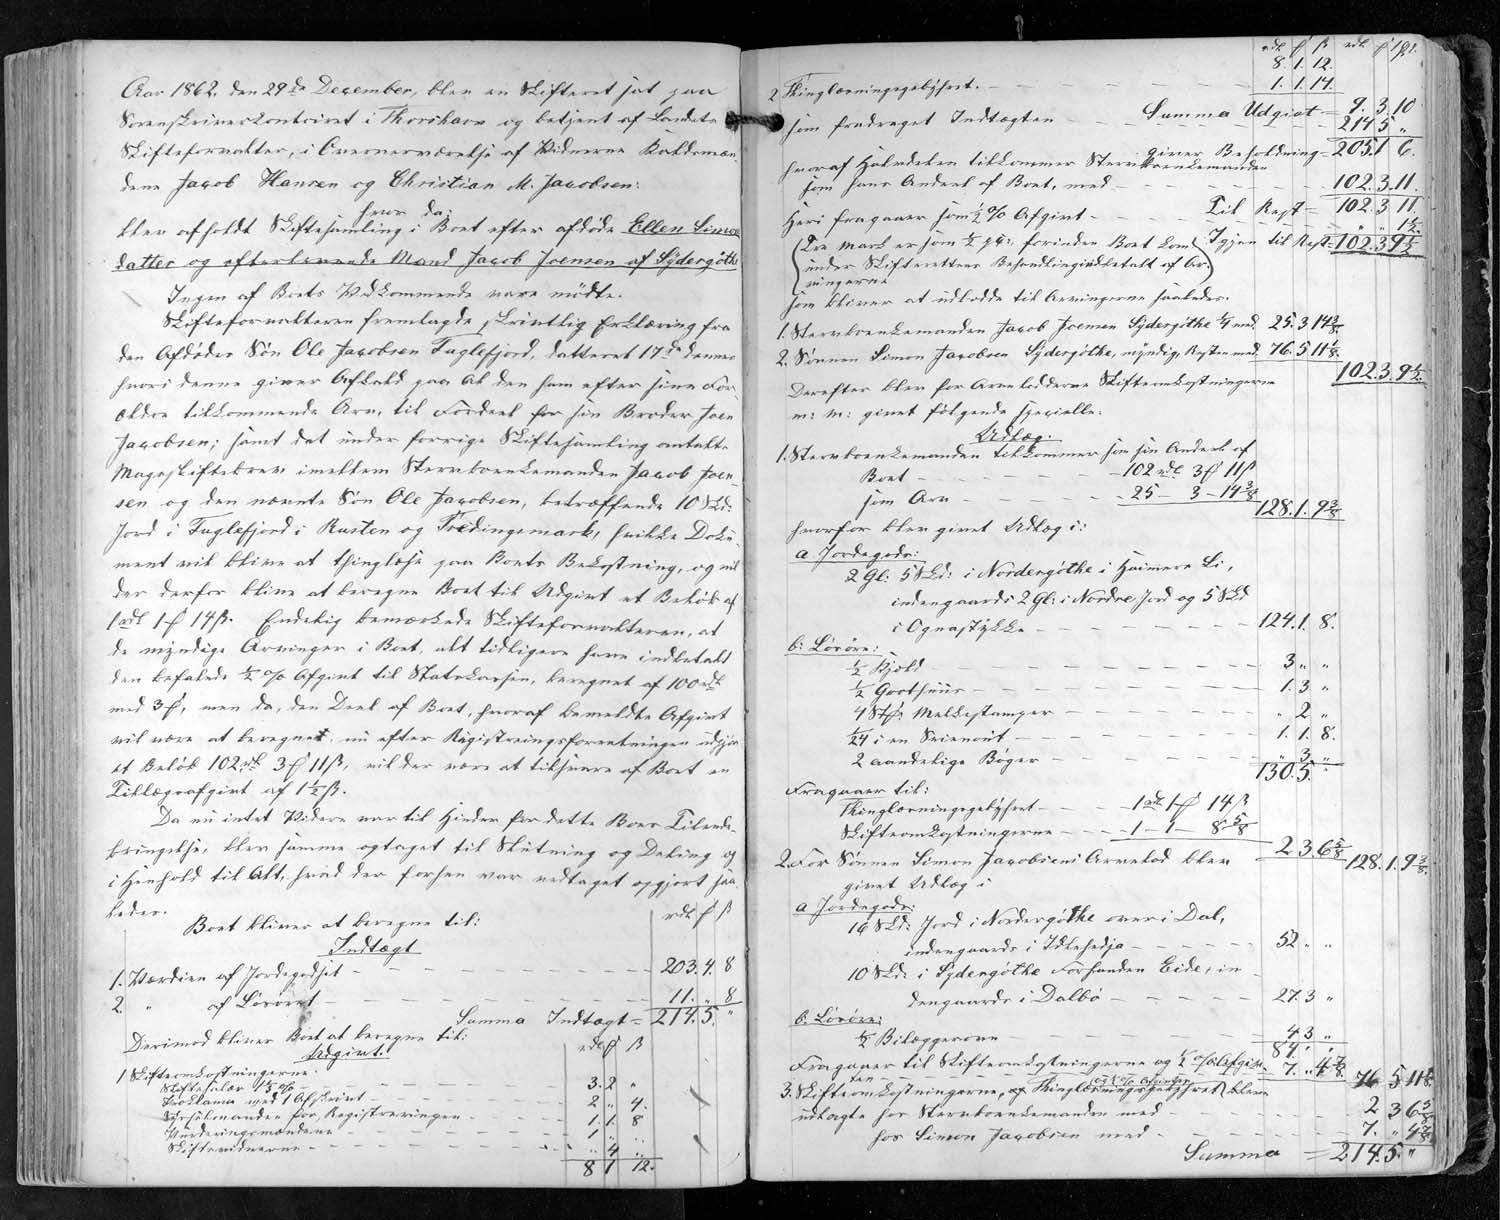 Aar 1862, den 29de December, blev en Skifteret sat paa
Sorenskriverkontoiret i Thorshavn og betjent af Landets
Skifteforvalter, i Overværelse af Vidnerne Kaldsmæn-
dene Jacob Hansen og Christian M. Jacobsen:
hvor da:
blev afholdt Skiftesamling i Boet efter afdøde Ellen Simons
datter og efterlevende Mand Jacob Joensen af Sydergøthe
Ingen af Boets Vedkommende vare mødte.
Skifteforvalteren fremlagde skriftlig Erklæring fra
den Afdødes Søn Ole Jacobsen Fuglefjord, datteret 17de dennes
hvori denne giver Afkald paa al den ham efter sine For-
ældre tilkommende Arv, til Fordeel for sin Broder
Jacobsen; samt det under forrige Skiftesamling omtalte
Mageskiftebrev imellem Stervboenkemanden Jacob Joen-
sen og den nævnte Søn Ole Jacobsen, betræffende 10 Skd:
Jord i Fuglefjord i Husten og Tredingsmark, hvilke Doku-
ment vil blive at thinglæse paa Boets Bekostning, og vil
der derfor blive at beregne Boet til Udgivt et Beløb af
1 rdl 1 ₰ 14 ß. Endelig bemærkede Skifteforvalteren, at
de myndige Arvinger i Boet, alt tidligere have indbetalt
den befalede ½ % Afgivt til Statskassen, beregnet af 100 rdl
med 3 ₰, men da, den Deel af Boet, hvoraf bemeldte Afgivt
vil være at beregnet nu efter Registreringsforretningen udgjør
et Beløb 102 rdl 3 ₰ 11 ß, vil der være at tilsvare af Boet en
Tillægsafgivt af 1½ ß.
Da nu intet Videre var til Hinder for dette Boes Tilende-
bringelse, blev samme optaget til Slutning og Deling og
i Henhold til Alt, hvad der forhen var vedtaget opgjort saa-
ledes.
Boet bliver at beregne til: rdl ₰ ß
Indtægt
1. Værdien af Jordegodset 203. 4. 8
2. " af Løsøret 11. " 8
Summa Indtægt = 214. 5. "
Derimod bliver Boet at beregne til:
Udgivt. rdl ₰ ß
1 Skifteomkostningerne.
Skiftesalær 1½ % 3. 2 "
Proklama med 1 Afskrivt 2 " 4.
Sysselmanden for Registreringen 1. 1. 8
Vurderingsmændene 1 " "
Skiftevidnerne " 4 "
8 1 12.
rdl ₰ ß rdl ₰ ß
8. 1. 12.
2 Thinglæsningsgebyhret. 1. 1. 14.
Summa Udgivt = 9. 3. 10
som fradraget Indtægten 214 5 "
giver Beholdning = 205. 1 6.
hvoraf Halvdelen tilkommer Stervboenkemanden
som hans Andeel af Boet, med 102. 3. 11.
Til Rest = 102. 3 11
Heri fragaaer som ½ % Afgivt " " 1½.
(Tre Mark er som ½ pCt: forinden Boet kom Igjen til Rest = 102. 3. 9½
under Skifterettens Behandling indbetalt af Ar-
vingerne)
som bliver at udlodde til Arvingerne saaledes.
1. Stervboenkemanden Jacob Joensen Sydergøthe ¼ med 25. 3 14⅜
2. Sønnen Simon Jacobsen Sydergøthe, myndig, Resten med 76. 5 11⅛.
102. 3. 9½.
Derefter blev for Arvelodderne Skifteomkostningerne
m: m: givet følgende specielle:
Udlæg:
1. Stervboenkemanden tilkommer som sin Andeel af
Boet 102 rdl 3 ₰ 11 ß
som Arv 25 – 3 – 14⅜
128. 1. 9⅜
hvorfor blev givet Udlæg i:
a. Jordegods:
2 Gl: 5 Skd: i Nordergøthe i Heimere Li,
indengaards 2 Gl: i Nordre Jord og 5 Skd
i Ognastykke 124. 1. 8.
b: Løsøre:
½ Hjeld 3 " "
½ Grothuus 1. 3 "
4 Stk: Melkestamper " 2 "
1/24 i en Svienout 1. 1. 8.
2 aandelige Bøger " 3 "
130. 5. "
Fragaaer til:
Thinglæsningsgebyhret 1 rdl 1 ₰ 14 ß
Skifteomkostningerne 1 – 1 – 8⅝
2 3 6⅝ 128. 1. 9⅜.
2. For Sønnen Simon Jacobsens Arvelod blev
givet Udlæg i
a Jordegods:
16 Skd: Jord i Nordergøthe over i Dal,
indengaards i Idlehedja 52 " "
10 Skd: i Sydergøthe Forhanden Eide, in-
dengaards i Dalbø 27. 3 "
b: Løsøre:
½ Bilæggerovn 4 3 "
84. " "
Fragaaer til Skifteomkostningerne og ½ % Afgivt 7. " 4⅞ 76 5 11⅛.
3. Skifteomkostningerne, Thinglæsningsgebyhret og ½ % Afgivten blev
udlagte hos Stervboenkemanden med 2 3 6⅝
hos Simon Jacobsen med 7. " 4⅞
Summa = 214. 5. "